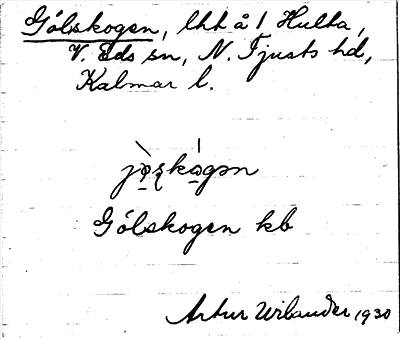 Gölskogen, lht å 1 Hulta,
V. Eds sn, N. Tjusts hd,
Kalmar l.
Gölskogen kb
Artur Wilander 1930